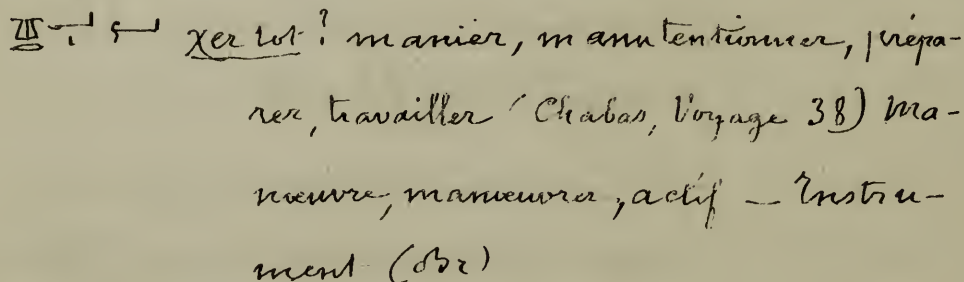 χer tot? manier, manutentionner, prépa-
rer, travailler (Chabas, Voyage 38) Ma-
nœuvre, manœuvrer, actif — Instru-
ment (Br)